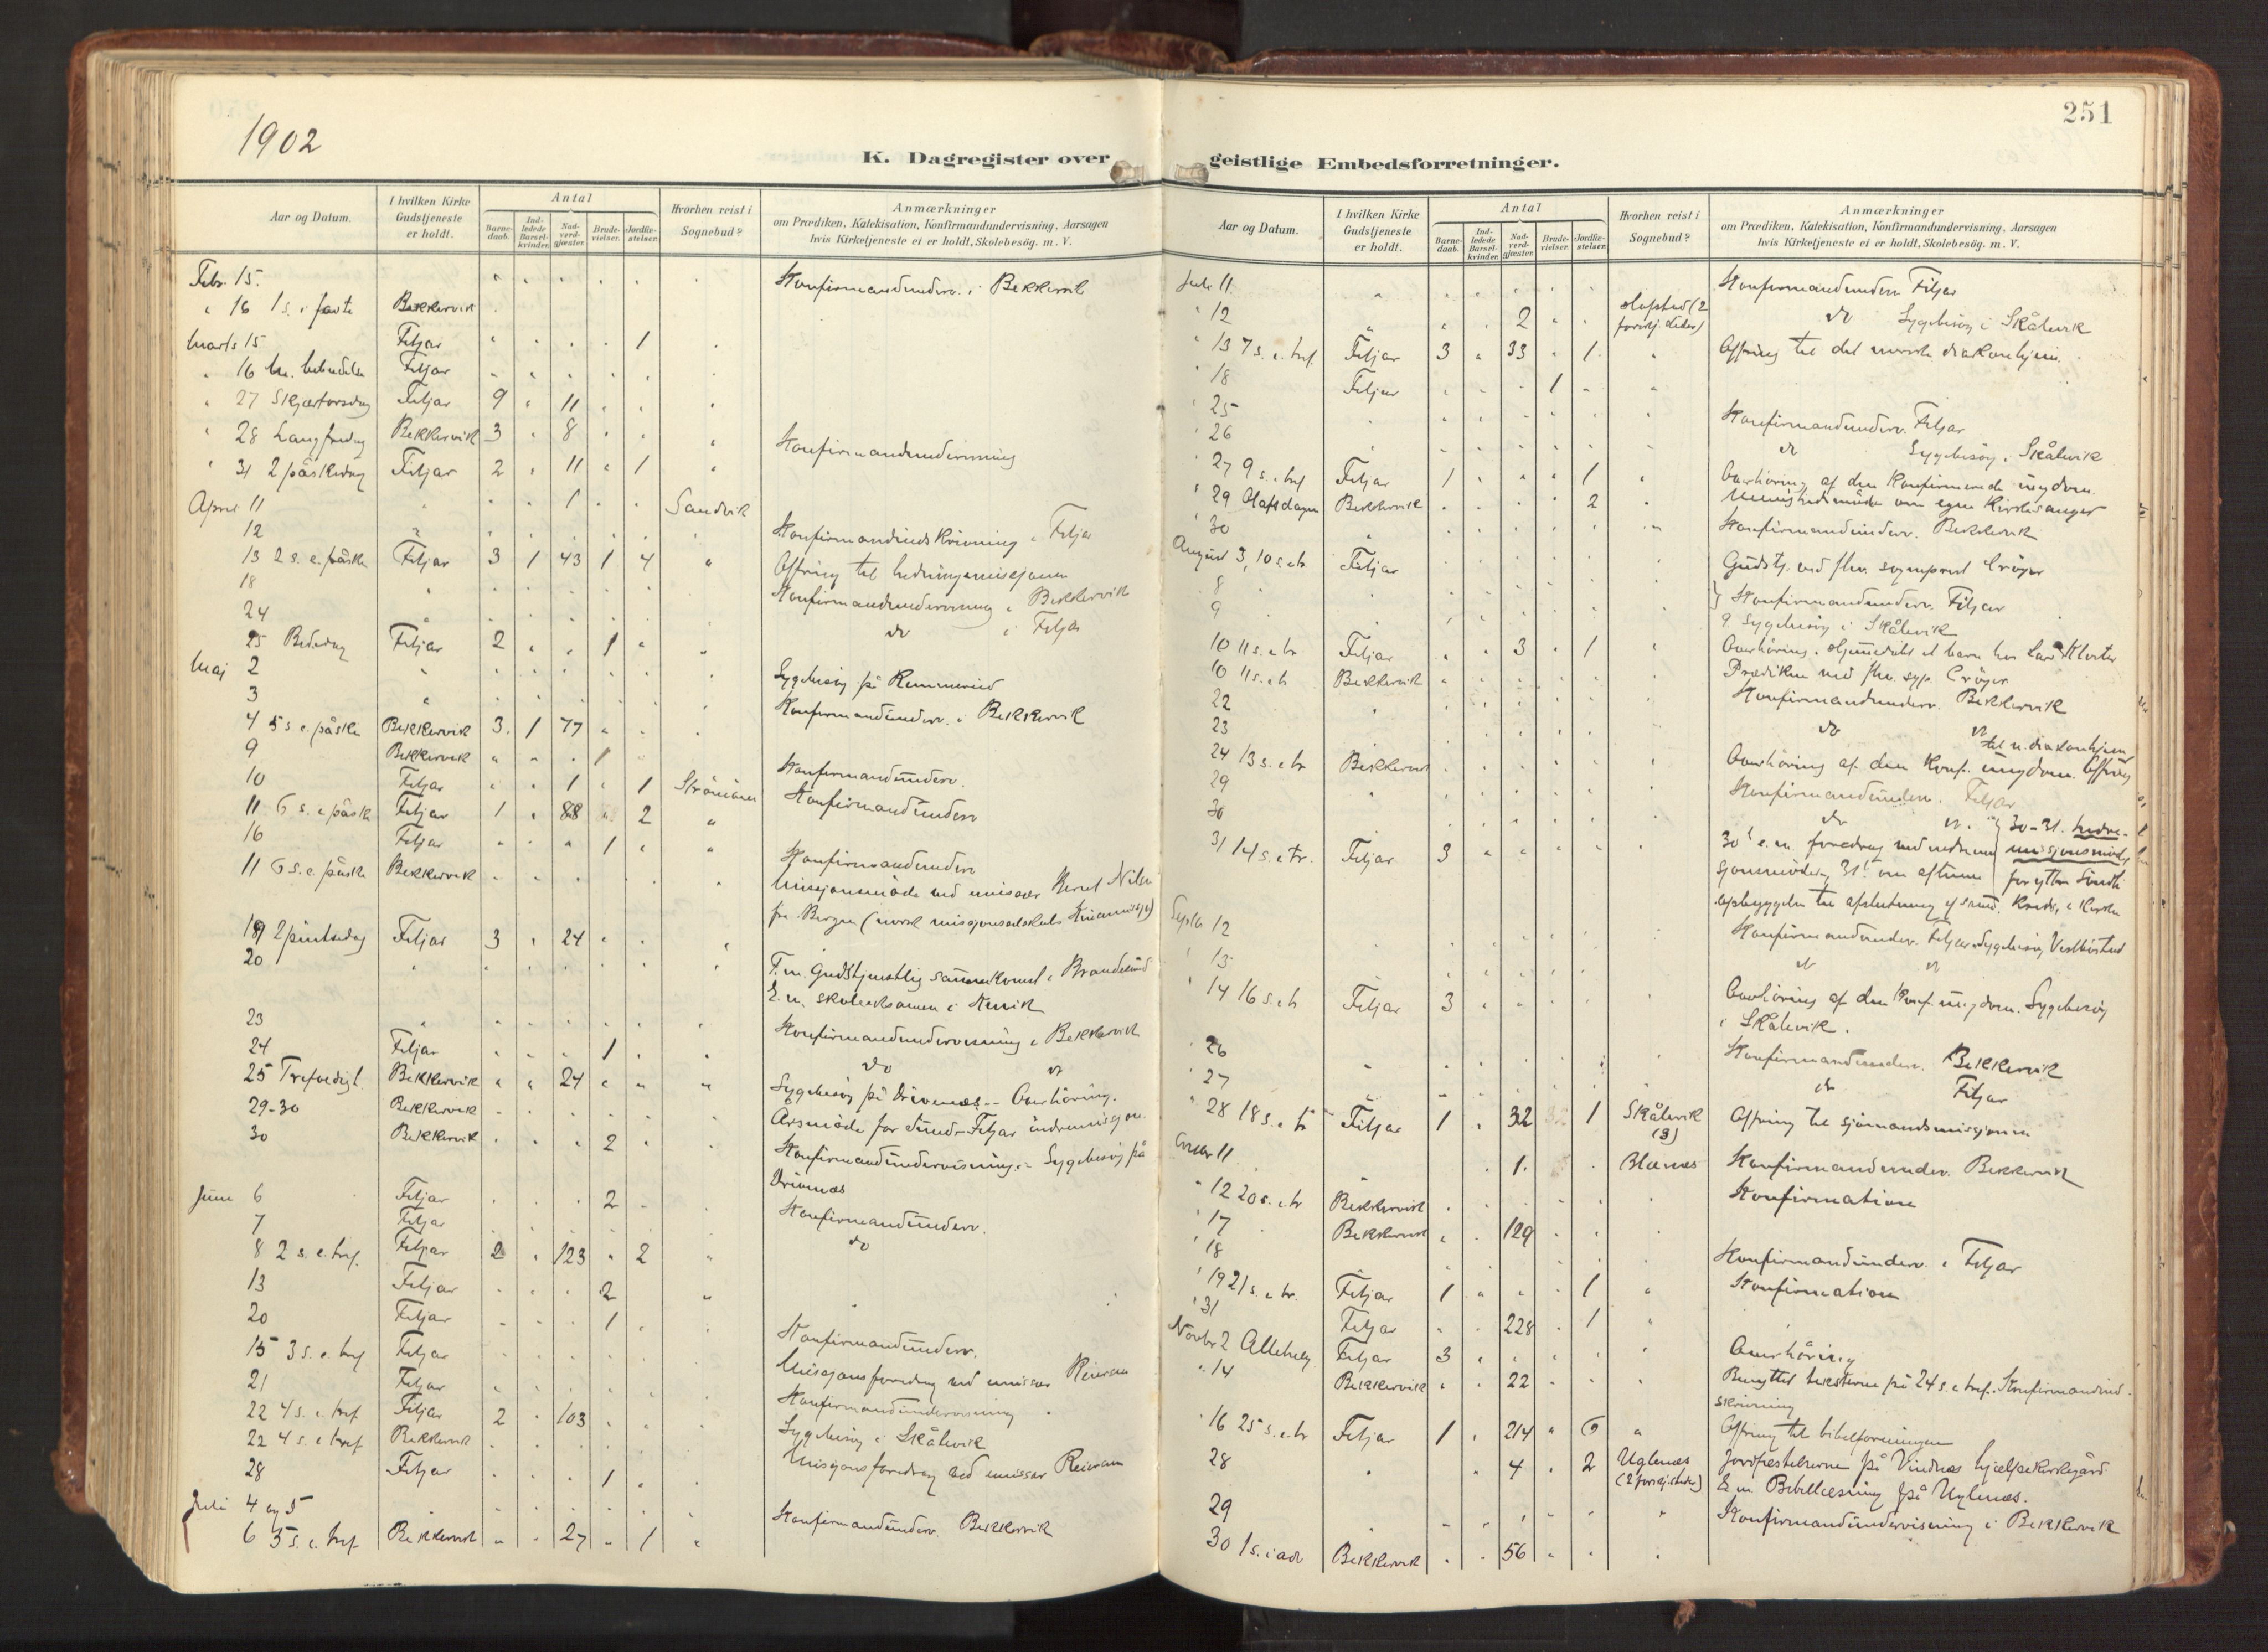 251
1902
K. Dagregister over geistlige Embedsforretninger.
Aar og Datum. I hvilken Kirke Gudstjeneste er holdt. Antal Barnedaab. Indledede Barselkvinder. Nadverdgjæster. Brudevielser. Jordfæstelser. Hvorhen reist i Sognebud? Anmærkninger om Prædiken, Katekisation, Konfirmandundervisning, Aarsagen hvis Kirketjeneste ei er holdt, Skolebesög. m. V.
Febr. 15. Konfirmandunderv. i Bekkervik
" 16 1 s. i faste Bekkervik
Marts 15 Fitjar 1
" 16 M. bebudelse Fitjar
" 27 Skjærtorsdag Fitjar 9 11
" 28 Langfredag Bekkervik 3 8
" 31 2 påskedag Fitjar 2 11 1 Konfirmandundervisning
April 11 1 Sandvik
12 Konfirmandindskrivning i Fitjar
13 2 s. e. påske Fitjar 3 1 43 1 4 Offring til hedningemissjonen
18 Konfirmandundervisning i Bekkervik
24 do i Fitjar
25 Bededag Fitjar 2 1
Maj 2 Sygebesög på Rimmereid
3 Konfirmandunderv. i Bekkervik
4 5 s. e. påske Bekkervik 3 1 77
9 Bekkervik 1
10 Fitjar 1 1 Konfirmandunderv.
11 6 s. e. påske Fitjar 1 88 2 Konfirmandunderv
16 Fitjar 1
11 6 s. e. påske Bekkervik Konfirmandunderv
Missjonsmöde ved missær Bernt Nilsen
fra Bergen (norsk missjonsselskabs Kinamissj)
19 2 pintsedag Fitjar 3 24
20 F.m. Gudstjenstlig sammenkomst i Brandasund
E.m. skoleeksamen i
23 Konfirmandundervisning i Bekkervik
24 Fitjar 1 do do
25 Trefoldigh. Bekkervik 24 Sygebesög på Drivenæs -- Overhöring.
29-30 Bekkervik Årsmöde for Fitjar indremissjon
30 Bekkervik 2 Konfirmandundervisning. - Sygebesög på
Drivenæs
Juni 6 Fitjar 2 Konfirmandunderv.
7 Fitjar do
8 2 s. e. tref. Fitjar 2 123 2
13 Fitjar 2
20 Fitjar 1
15 3 s. e. tref Fitjar Konfirmandunderv.
21 Fitjar Missjonsforedrag ved missær
22 4 s. e. tref Fitjar 2 103 Konfirmandundervisning
22 4 s. e. tref Bekkervik Sygebesög i Skålevik
28 Fitjar 1 Missjonsforedrag ved missær
Juli 4 og 5 Konfirmandunderv. Bekkervik
6 5 s. e. tref. Bekkervik 27 1
Aar og Datum. I hvilken Kirke Gudstjeneste er holdt. Antal Barnedaab. Indledede Barselkvinder. Nadverdgjæster. Brudevielser. Jordfæstelser. Hvorhen reist i Sognebud? Anmærkninger om Prædiken, Katekisation, Konfirmandundervisning, Aarsagen hvis Kirketjeneste ei er holdt, Skolebesög. m. V.
Juli 11. Konfirmandunderv Fitjar
" 12 2 (2 forskj. steder) do Sygebesög i Skålevik
" 13 7 s. e. tref. Fitjar 3 33 1 Offring til det norske diakonhjem.
" 18 Fitjar 1
" 25 Konfirmandunderv. Fitjar
" 26 do Sygebesög i Skålevik
" 27 9 s. e. tref Fitjar 1 1 Overhöring af den konfirmerede ungdom.
" 29 Olafsdagen Bekkervik 2 Menighedsmöde om egen kirkesanger
" 30 Konfirmandunderv. Bekkervik
August 3, 10 s. e. tr Fitjar Gudstj. ved fhv. sogneprest Cröger
8 } Konfirmandunderv. Fitjar
9 9 Sygebesög i Skålevik
10 11 s. e. tr Fitjar 3 1 Overhöring. Hjemmedöbt et barn hos Lars Kloster
10 11 s. e. tr Bekkervik Prædiken ved fhv. sgp. Cröger
22 Konfirmandunderv. Bekkervik
23 do do
til n. diakonhjem
24 13 s. e. tr Bekkervik Overhöring af den konf. ungdom. Offring
29 Konfirmandunderv. Fitjar
30 do do. 30-31. indre-
31 14 s. e. tr. Fitjar 3 30' e.m. foredrag ved indre missjonsmöde
sjonsmöde, 31' om aftenen for ytre Sundh.
opbyggelse til afslutning af samme i kirken
Septbr 12 Konfirmandunder. Fitjar. Sygebesög Vestböstad
" 13 do do
" 14 16 s. e. tr Fitjar 3 Overhöring af den konf. ungdom. Sygebesög
i Skålevik.
" 26 Konfirmandunderv. Bekkervik
" 27 do Fitjar
" 28 18 s. e. tr Fitjar 1 32 1 Skålevik (3) Offring til sjömandsmissjonen
11 1 Blænes Konfirmandunder. Bekkervik
" 12 20 s. e. tr Bekkervik Konfirmation
" 17 Bekkervik 129
" 18 Konfirmandunderv. i Fitjar
" 19 21 s. e. tr. Fitjar 1 1 Konfirmation
" 31 Fitjar 228 1
Novbr 2 Allehelg. Fitjar 3 Overhöring
" 14 Bekkervik 22 Benyttet teksterne på 24 s. e. tref. Konfirmandind-
skrivning
" 16 25 s. e. tr Fitjar 1 214 6 Offring til bibelforeningen
28 4 2 Uglenæs (2 forskj. steder) Jordfæstelserne på Vindnæs hjælpekirkegård
E.m. Bibellæsning på Uglenæs.
29 Konfirmandundervisning i Bekkervik
30 1 s. i adv Bekkervik 56